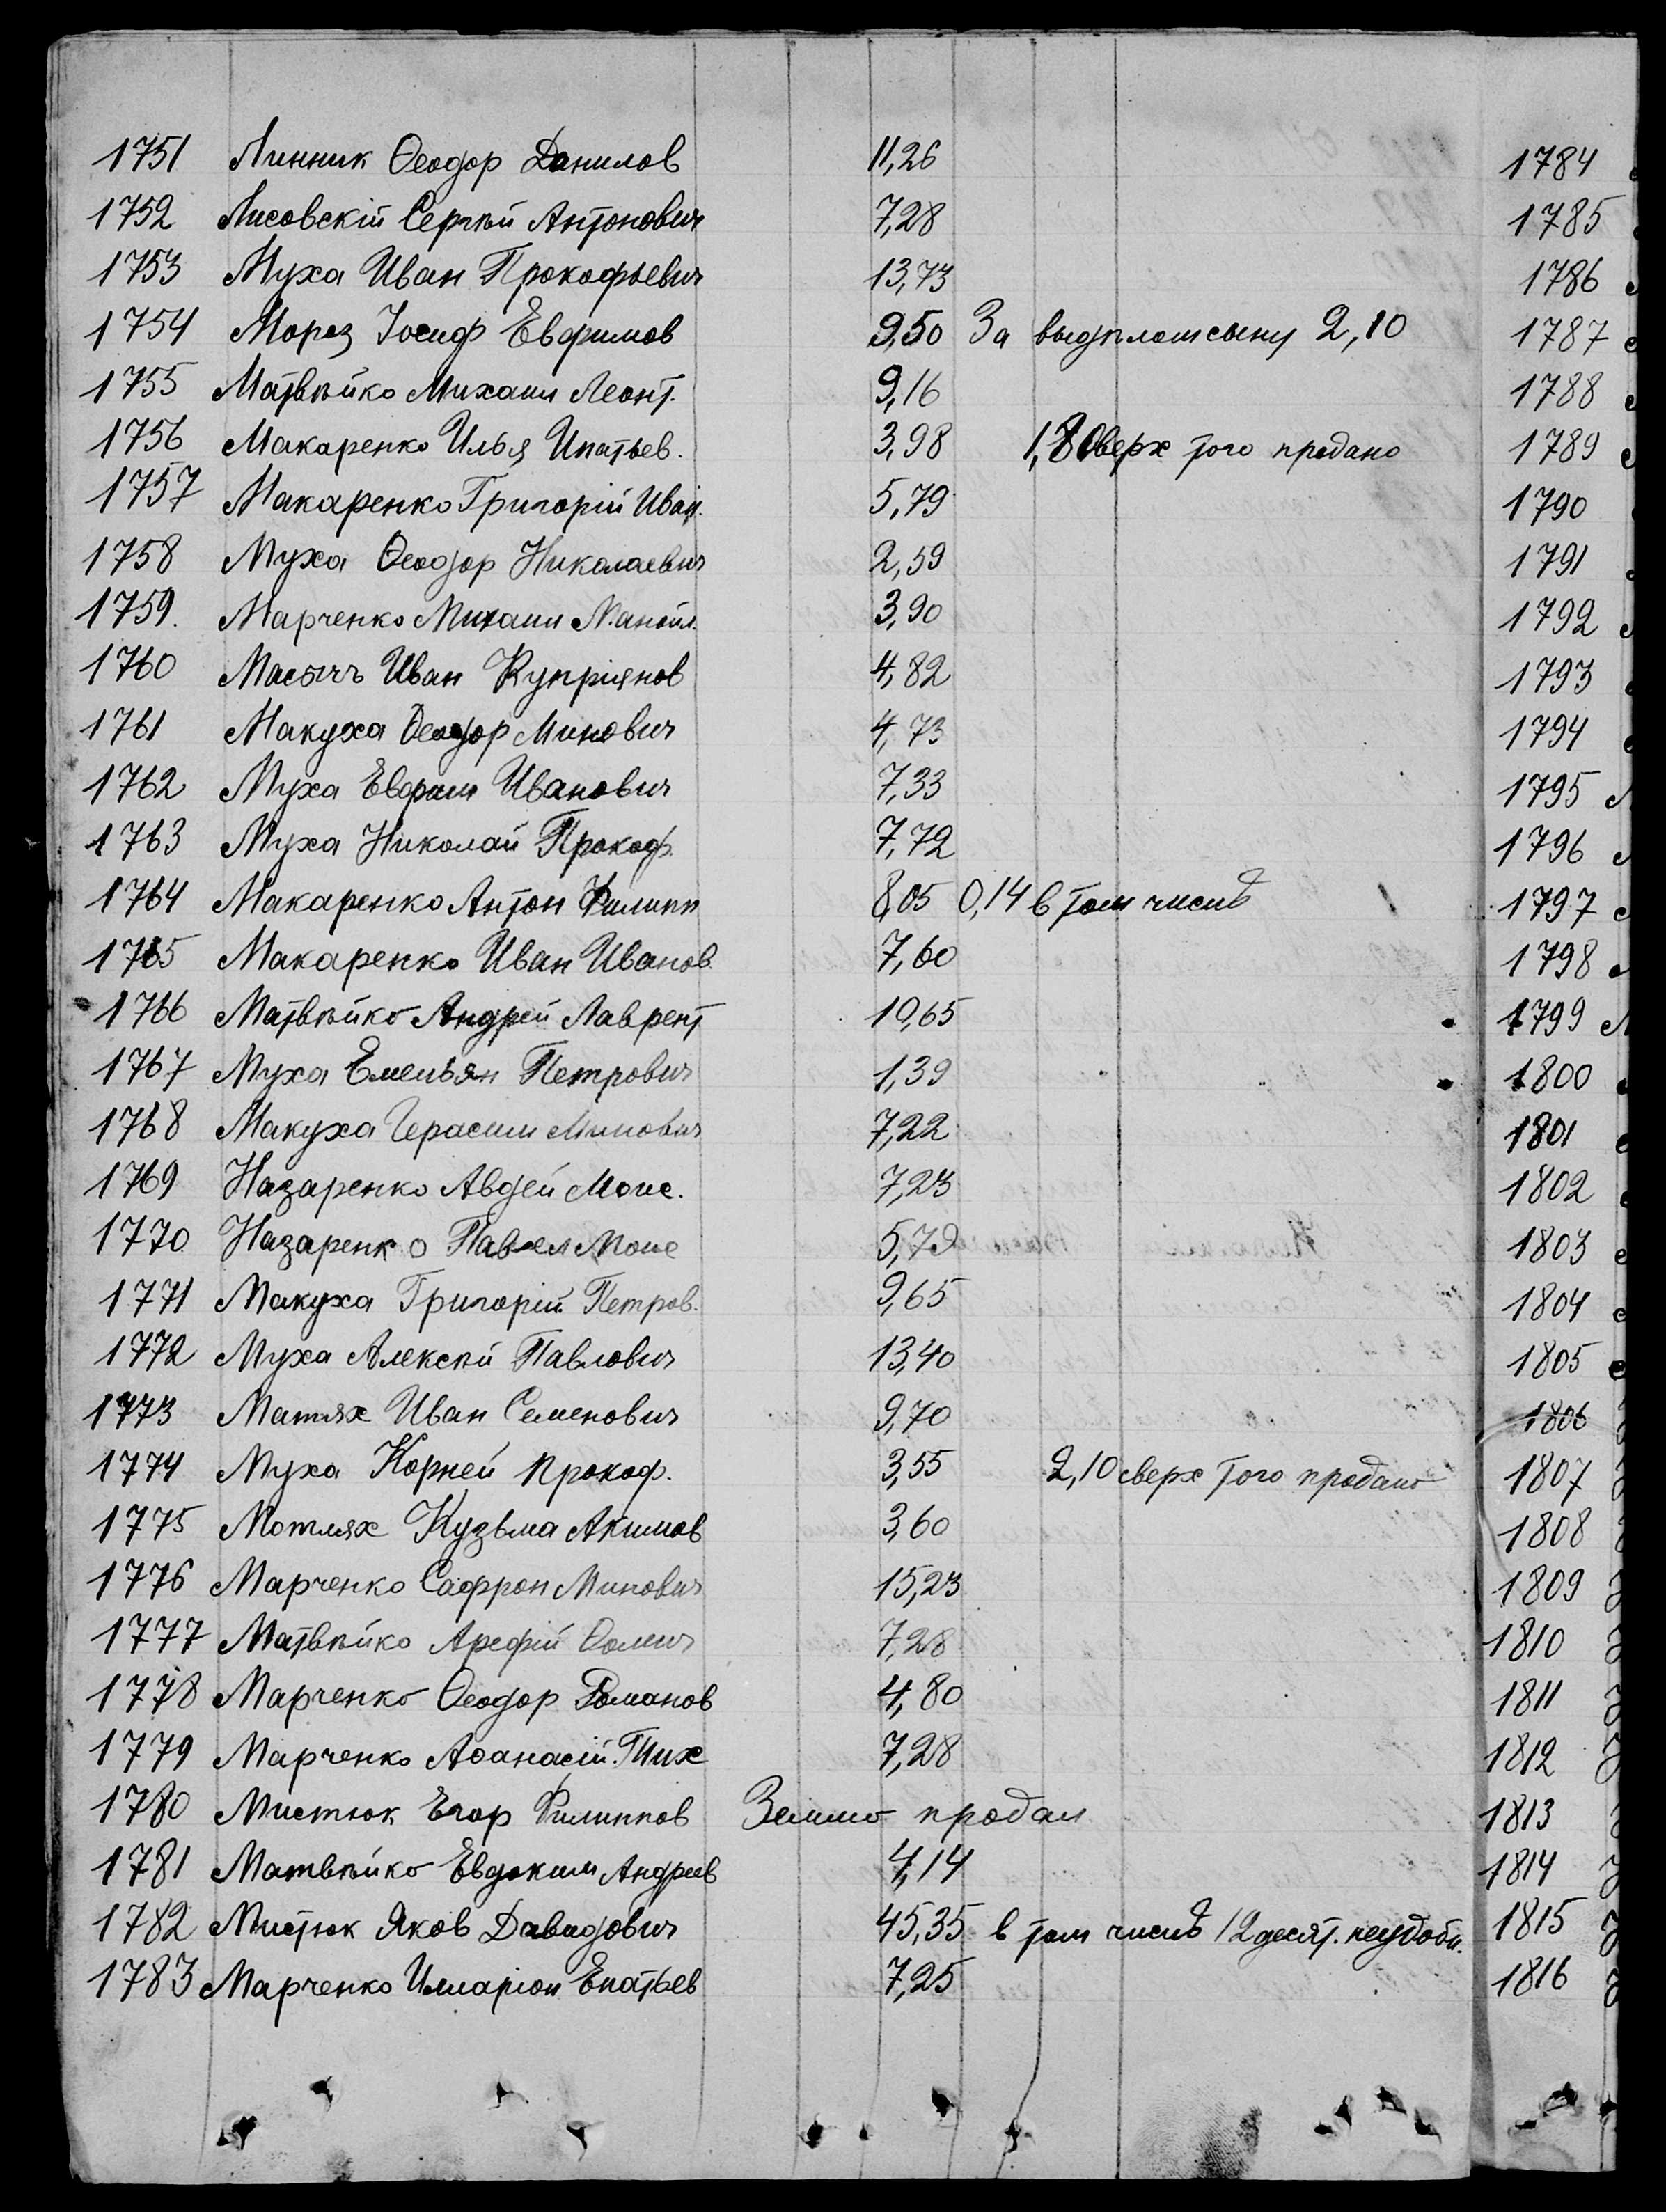 1751 Линник Ѳеодор Данилов 11,26
1752 Лисовскій Сергѣй Антонович 7,28
1753 Муха Иван Прокофьевич 13,73
1754 Мороз Іосиф Евфимов 9,50 За выдѣлом сыну 2,10
1755 Матвѣйко Михаил Леонт. 9,16
1756 Макаренко Илья Ипатьев. 3,98 1,80 сверх того продано
1757 Макаренко Григорій Иван. 5,79
1758 Муха Ѳеодор Николаевич 2,59
1759. Марченко Михаил Манойл. 3,90
1760 Масычъ Иван Купріянов 4,82
1761 Макуха Ѳеодор Минович 4,73
1762 Муха Евфим Иванович 7,33
1763 Муха Николай Прокоф. 7,72
1764 Макаренко Антон Филипп 8,05 0,14 в том числѣ
1765 Макаренко Иван Иванов. 7,60
1766 Матвѣйко Андрей Лаврент 10,65
1767 Муха Емельян Петрович 1,39
1768 Макуха Герасим Минович 7,22
1769 Назаренко Авдей Моис. 7,23
1770 Назаренко Павел Моис 5,79
1771 Макуха Григорій Петров. 9,65
1772 Муха Алексѣй Павлович 13,40
1773 Матлях Иван Семенович 9,70
1774 Муха Корней Прокоф. 3,55 2,10 сверх того продано
1775 Мотлях Кузьма Акимов 3,60
1776 Марченко Сафрон Минович 15,23
1777 Матвѣйко Арефій Ѳомич 7,28
1778 Марченко Ѳеодор Романов 4,80
1779 Марченко Аѳанасій Тих 7,28
1780 Мистюк Егор Филиппов Землю продал
1781 Матвѣйко Евдоким Андреев 4,14
1782 Мистюк Яков Давидович 45,35 в том числѣ 12 десят. неудобн.
1783 Марченко Илларіон Епатьев 7,25
1784
1785
1786
1787
1788
1789
1790
1791
1792
1793
1794
1795
1796
1797
1798
1799
1800
1801
1802
1803
1804
1805
1806
1807
1808
1809
1810
1811
1812
1813
1814
1815
1816